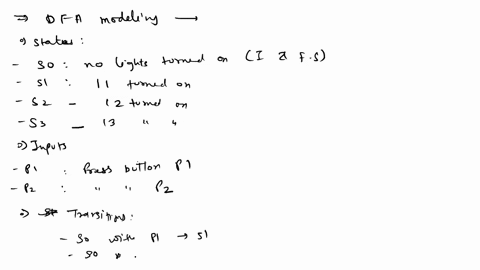 ⇒ DFA modeling →
⇒ States :
- S0 : no lights turned on (I & F.S)
- S1 : l1 turned on
- S2 - l2 turned on
- S3 - l3 " "
⇒ Inputs
- P1 : Press button P1
- P2 : " " P2
⇒ Transitions :
- S0 with P1 → S1
- S0